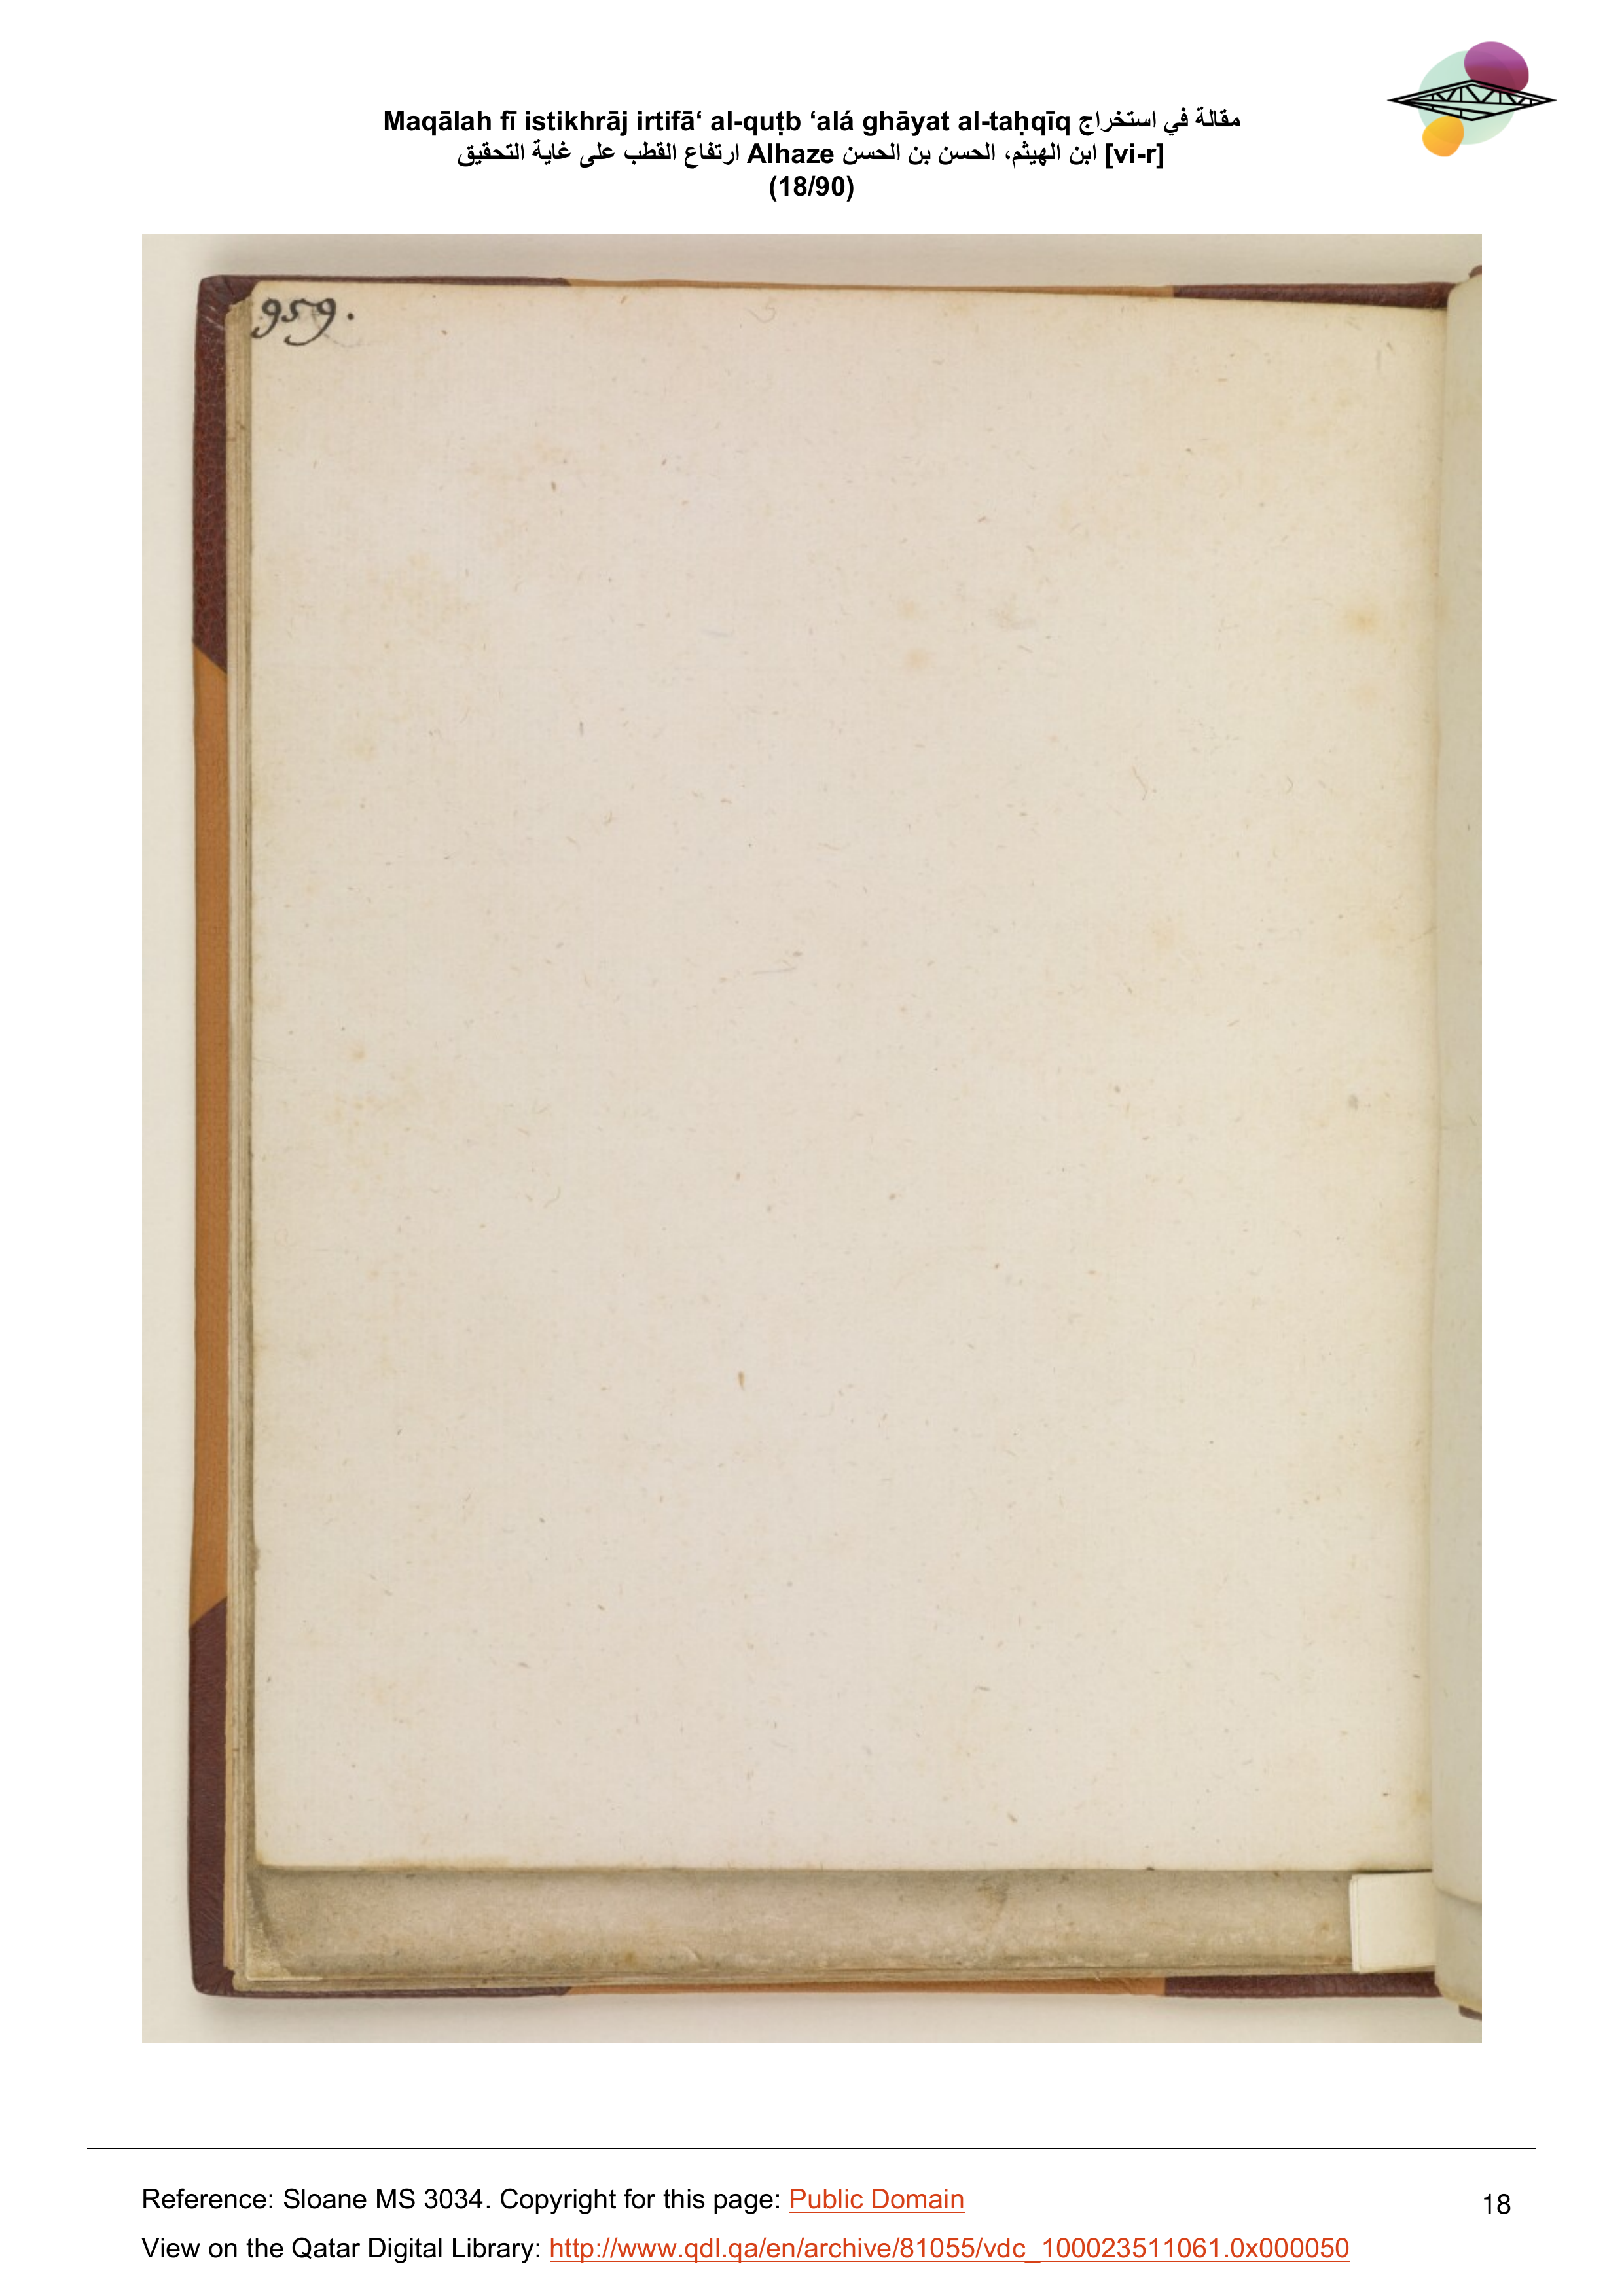 Maqālah fī istikhrāj irtifā‘ al-quṭb ‘alá ghāyat al-taḥqīq مقالة في استخراج
ارتفاع القطب على غاية التحقيق Alhaze ابن الهيثم، الحسن بن الحسن [vi-r]
(18/90)
959.
Reference: Sloane MS 3034. Copyright for this page: Public Domain
18
View on the Qatar Digital Library: http://www.qdl.qa/en/archive/81055/vdc_100023511061.0x000050